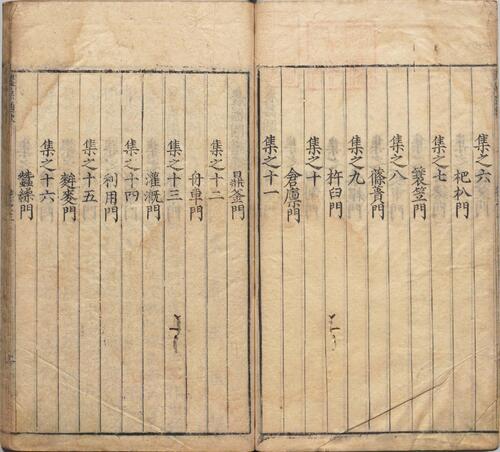 集之六
杷朳門
集之七
蓑笠門
集之八
篠蕢門
集之九
杵臼門
集之十
倉廩門
集之十一
鼎釜門
集之十二
舟車門
集之十三
灌漑門
集之十四
利用門
集之十五
麰麥門
集之十六
蠶繅門